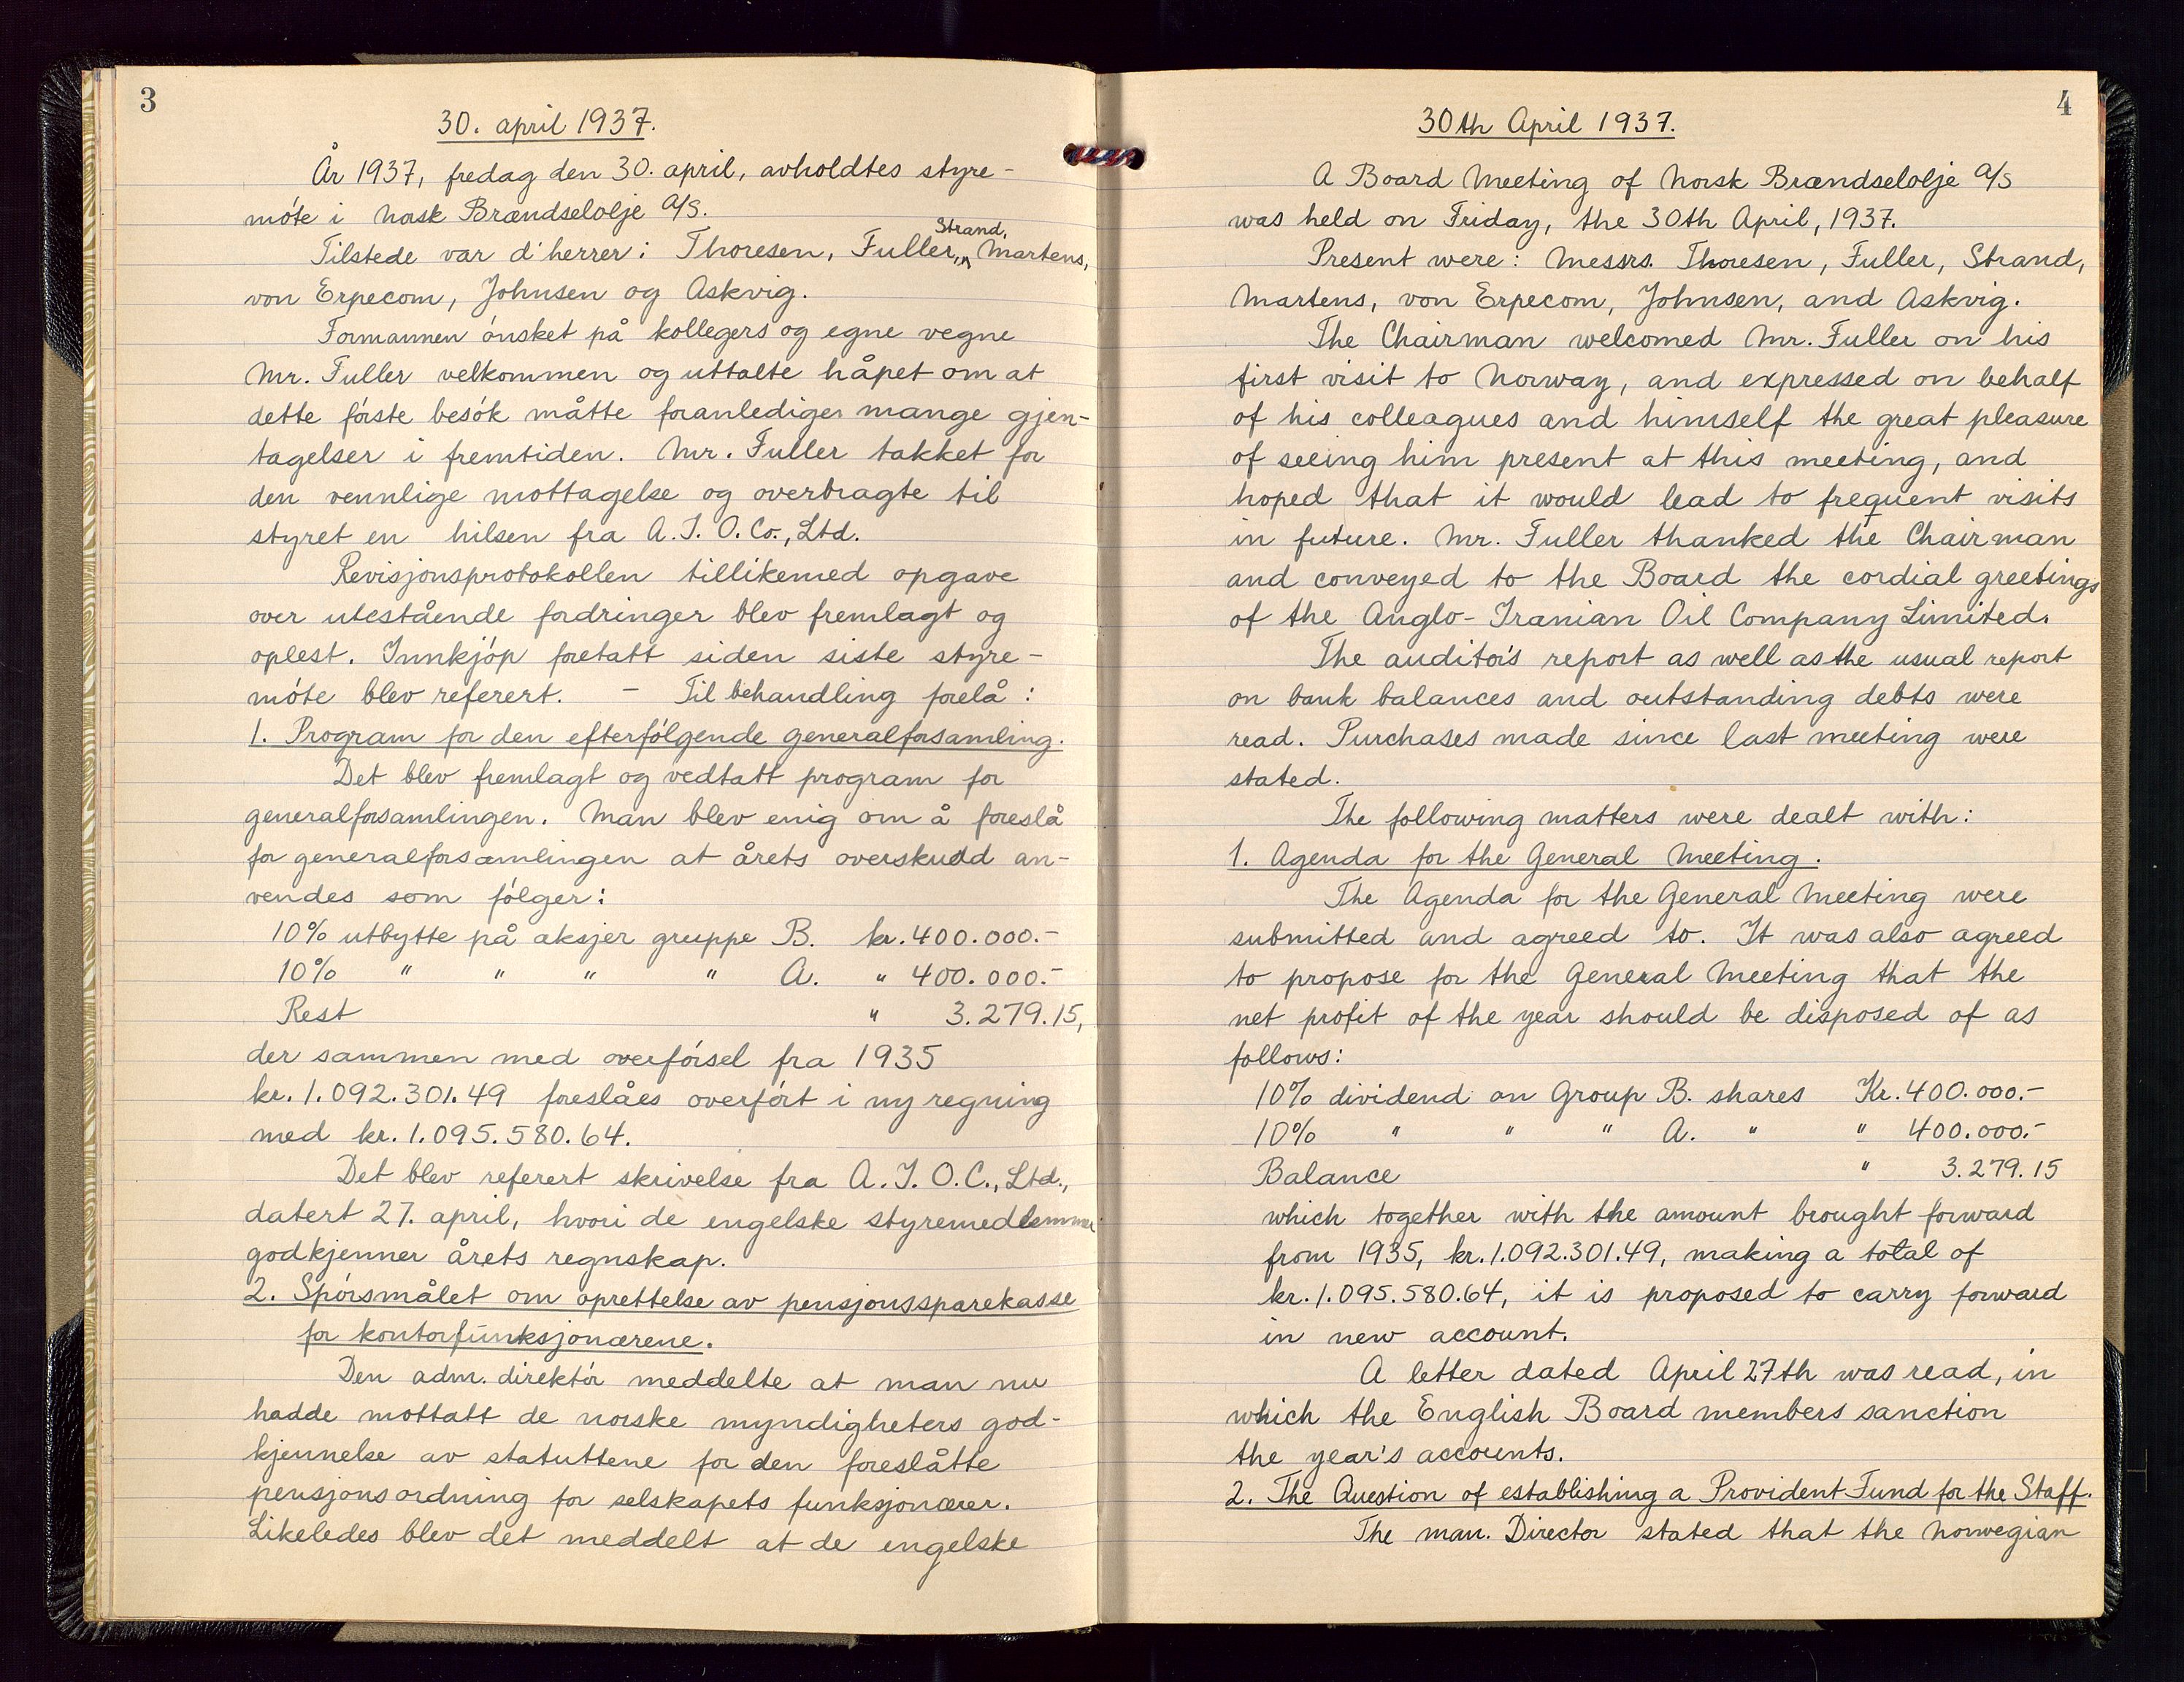 3
30. april 1937.
År 1937, fredag den 30. april, avholdtes styre-
møte i Norsk Brændselolje A/S.
Tilstede var d'herrer: Thoresen, Fuller, Strand, Martens,
von Erpecom, Johnsen og Askvig.
Formannen ønsket på kollegers og egne vegne
Mr. Fuller velkommen og uttalte håpet om at
dette første besøk måtte foranlediges mange gjen-
tagelser i fremtiden. Mr. Fuller takket for
den vennlige mottagelse og overbragte til
styret en hilsen fra A.I.O.Co., Ltd.
Revisjonsprotokollen tillikemed opgave
over utestående fordringer blev fremlagt og
oplest. Innkjøp foretatt siden siste styre-
møte blev referert. - Til behandling forelå:
1. Program for den efterfølgende generalforsamling.
Det blev fremlagt og vedtatt program for
generalforsamlingen. Man blev enig om å foreslå
for generalforsamlingen at årets overskudd an-
vendes som følger:
10% utbytte på aksjer gruppe B. kr. 400.000.-
10% " " " " A. " 400.000.-
Rest " 3.279.15,
der sammen med overførsel fra 1935
kr. 1.092.301.49 foreslåes overført i ny regning
med kr. 1.095.580.64.
Det blev referert skrivelse fra A.I.O.C., Ltd.,
datert 27. april, hvori de engelske styremedlemmer
godkjenner årets regnskap.
2. Spørsmålet om oprettelse av pensjonssparekasse
for kontorfunksjonærene.
Den adm. direktør meddelte at man nu
hadde mottatt de norske myndigheters god-
kjennelse av statuttene for den foreslåtte
pensjonsordning for selskapets funksjonærer.
Likeledes blev det meddelt at de engelske
4
30th April 1937.
A Board Meeting of Norsk Brændselolje A/S
was held on Friday, the 30th April, 1937.
Present were: Messrs. Thoresen, Fuller, Strand,
Martens, von Erpecom, Johnsen, and Askvig.
The Chairman welcomed Mr. Fuller on his
first visit to Norway, and expressed on behalf
of his colleagues and himself the great pleasure
of seeing him present at this meeting, and
hoped that it would lead to frequent visits
in future. Mr. Fuller thanked the Chairman
and conveyed to the Board the cordial greetings
of the Anglo-Iranian Oil Company Limited.
The auditor's report as well as the usual report
on bank balances and outstanding debts were
read. Purchases made since last meeting were
stated.
The following matters were dealt with:
1. Agenda for the General Meeting.
The Agenda for the General Meeting were
submitted and agreed to. It was also agreed
to propose for the General Meeting that the
net profit of the year should be disposed of as
follows:
10% dividend on Group B. shares Kr. 400.000.-
10% " " " A. " " 400.000.-
Balance " 3.279.15
which together with the amount brought forward
from 1935, kr. 1.092.301.49, making a total of
kr. 1.095.580.64, it is proposed to carry forward
in new account.
A letter dated April 27th was read, in
which the English Board members sanction
the year's accounts.
2. The Question of establishing a Provident Fund for the Staff.
The man. Director stated that the Norwegian